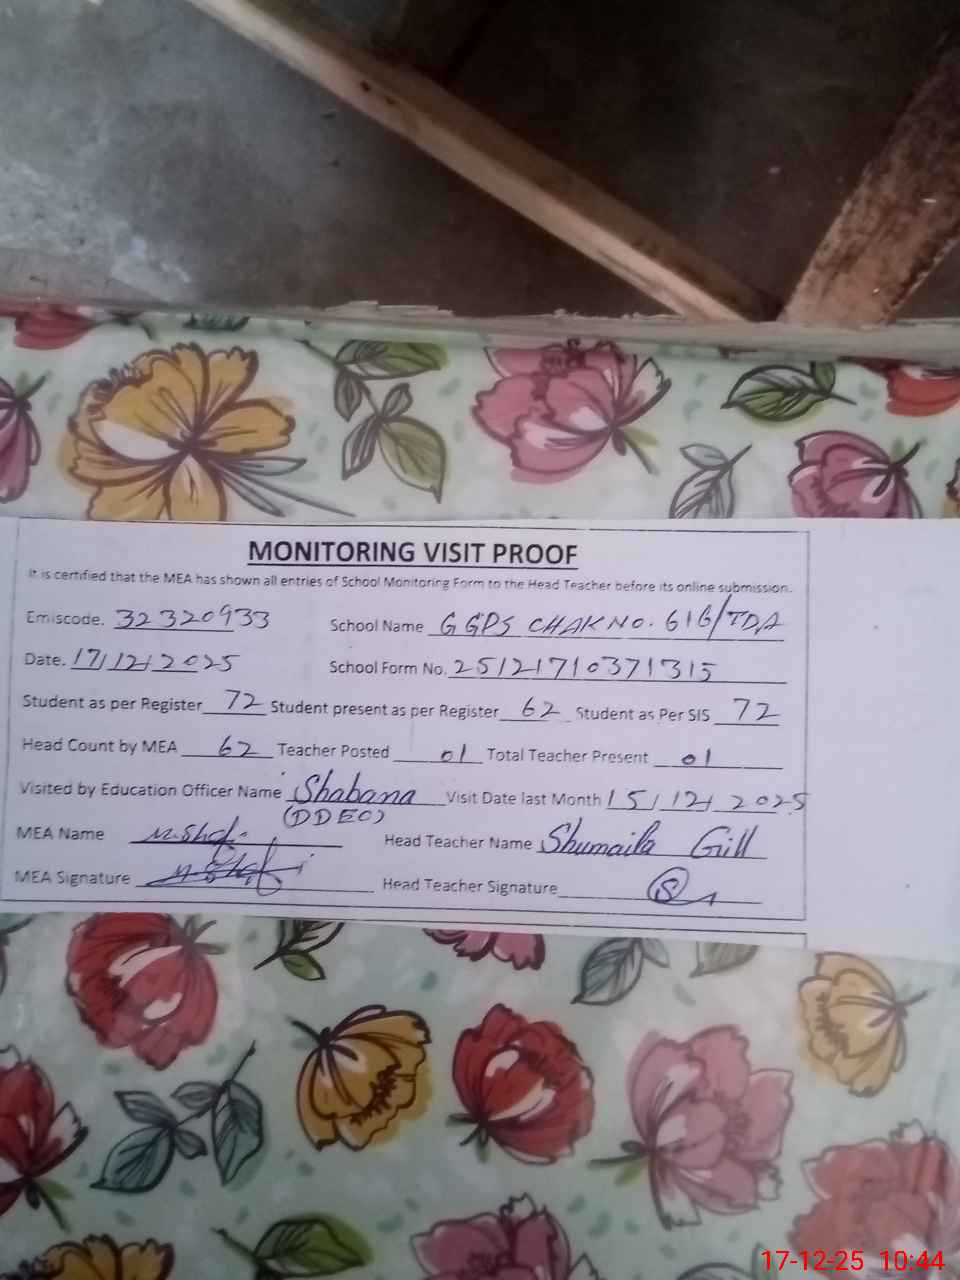 MONITORING VISIT PROOF
It is certified that the MEA has shown all entries of School Monitoring Form to the Head Teacher before its online submission.
Emiscode. 32320933 School Name GGPS CHAK NO. 616/TDA
Date. 17/12/2025 School Form No. 25121710371315
Student as per Register 72 Student present as per Register 62 Student as Per SIS 72
Head Count by MEA 62 Teacher Posted 01 Total Teacher Present 01
Visited by Education Officer Name Shabana Visit Date last Month 15/12/2025
(DDEO)
MEA Name Head Teacher Name Shumaila Gill
MEA Signature Head Teacher Signature
17-12-25 10:44